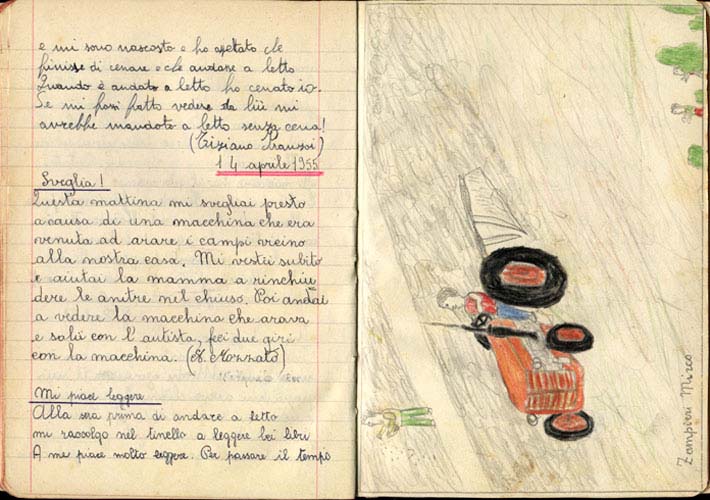 e mi sono nascosto e ho aspettato che
finisse di cenare e che andare a letto
Quando è andato a letto ho cenato io.
Se mi fossi fatto vedere da lui mi
avrebbe mandato a letto senza cena!
(Tiziano Franzoi)
14 aprile 1955
Sveglia!
Questa mattina mi svegliai presto
a causa di una macchina che era
venuta ad arare i campi vicino
alla nostra casa. Mi vestii subito
e aiutai la mamma a rinchiu=
dere le anitre nel chiuso. Poi andai
a vedere la macchina che arava
e salii con l'autista, feci due giri
con la macchina. (A. Mozzato)
Mi piace leggere
Alla sera prima di andare a letto
mi raccolgo nel tinello a leggere bei libri
A me piace molto leggere. Per passare il tempo
Zampieri Mirco